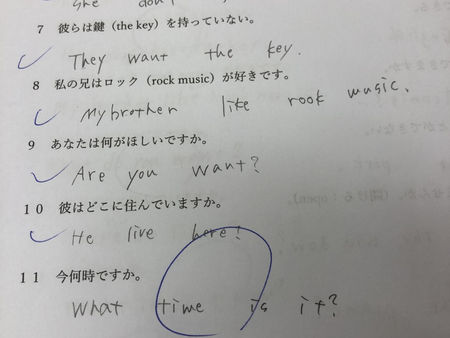 she don't
7 彼らは鍵 (the key) を持っていない。
They want the key.
8 私の兄はロック (rock music) が好きです。
My brother like rook music.
9 あなたは何がほしいですか。
Are you want?
10 彼はどこに住んでいますか。
He live here!
11 今何時ですか。
What time is it?